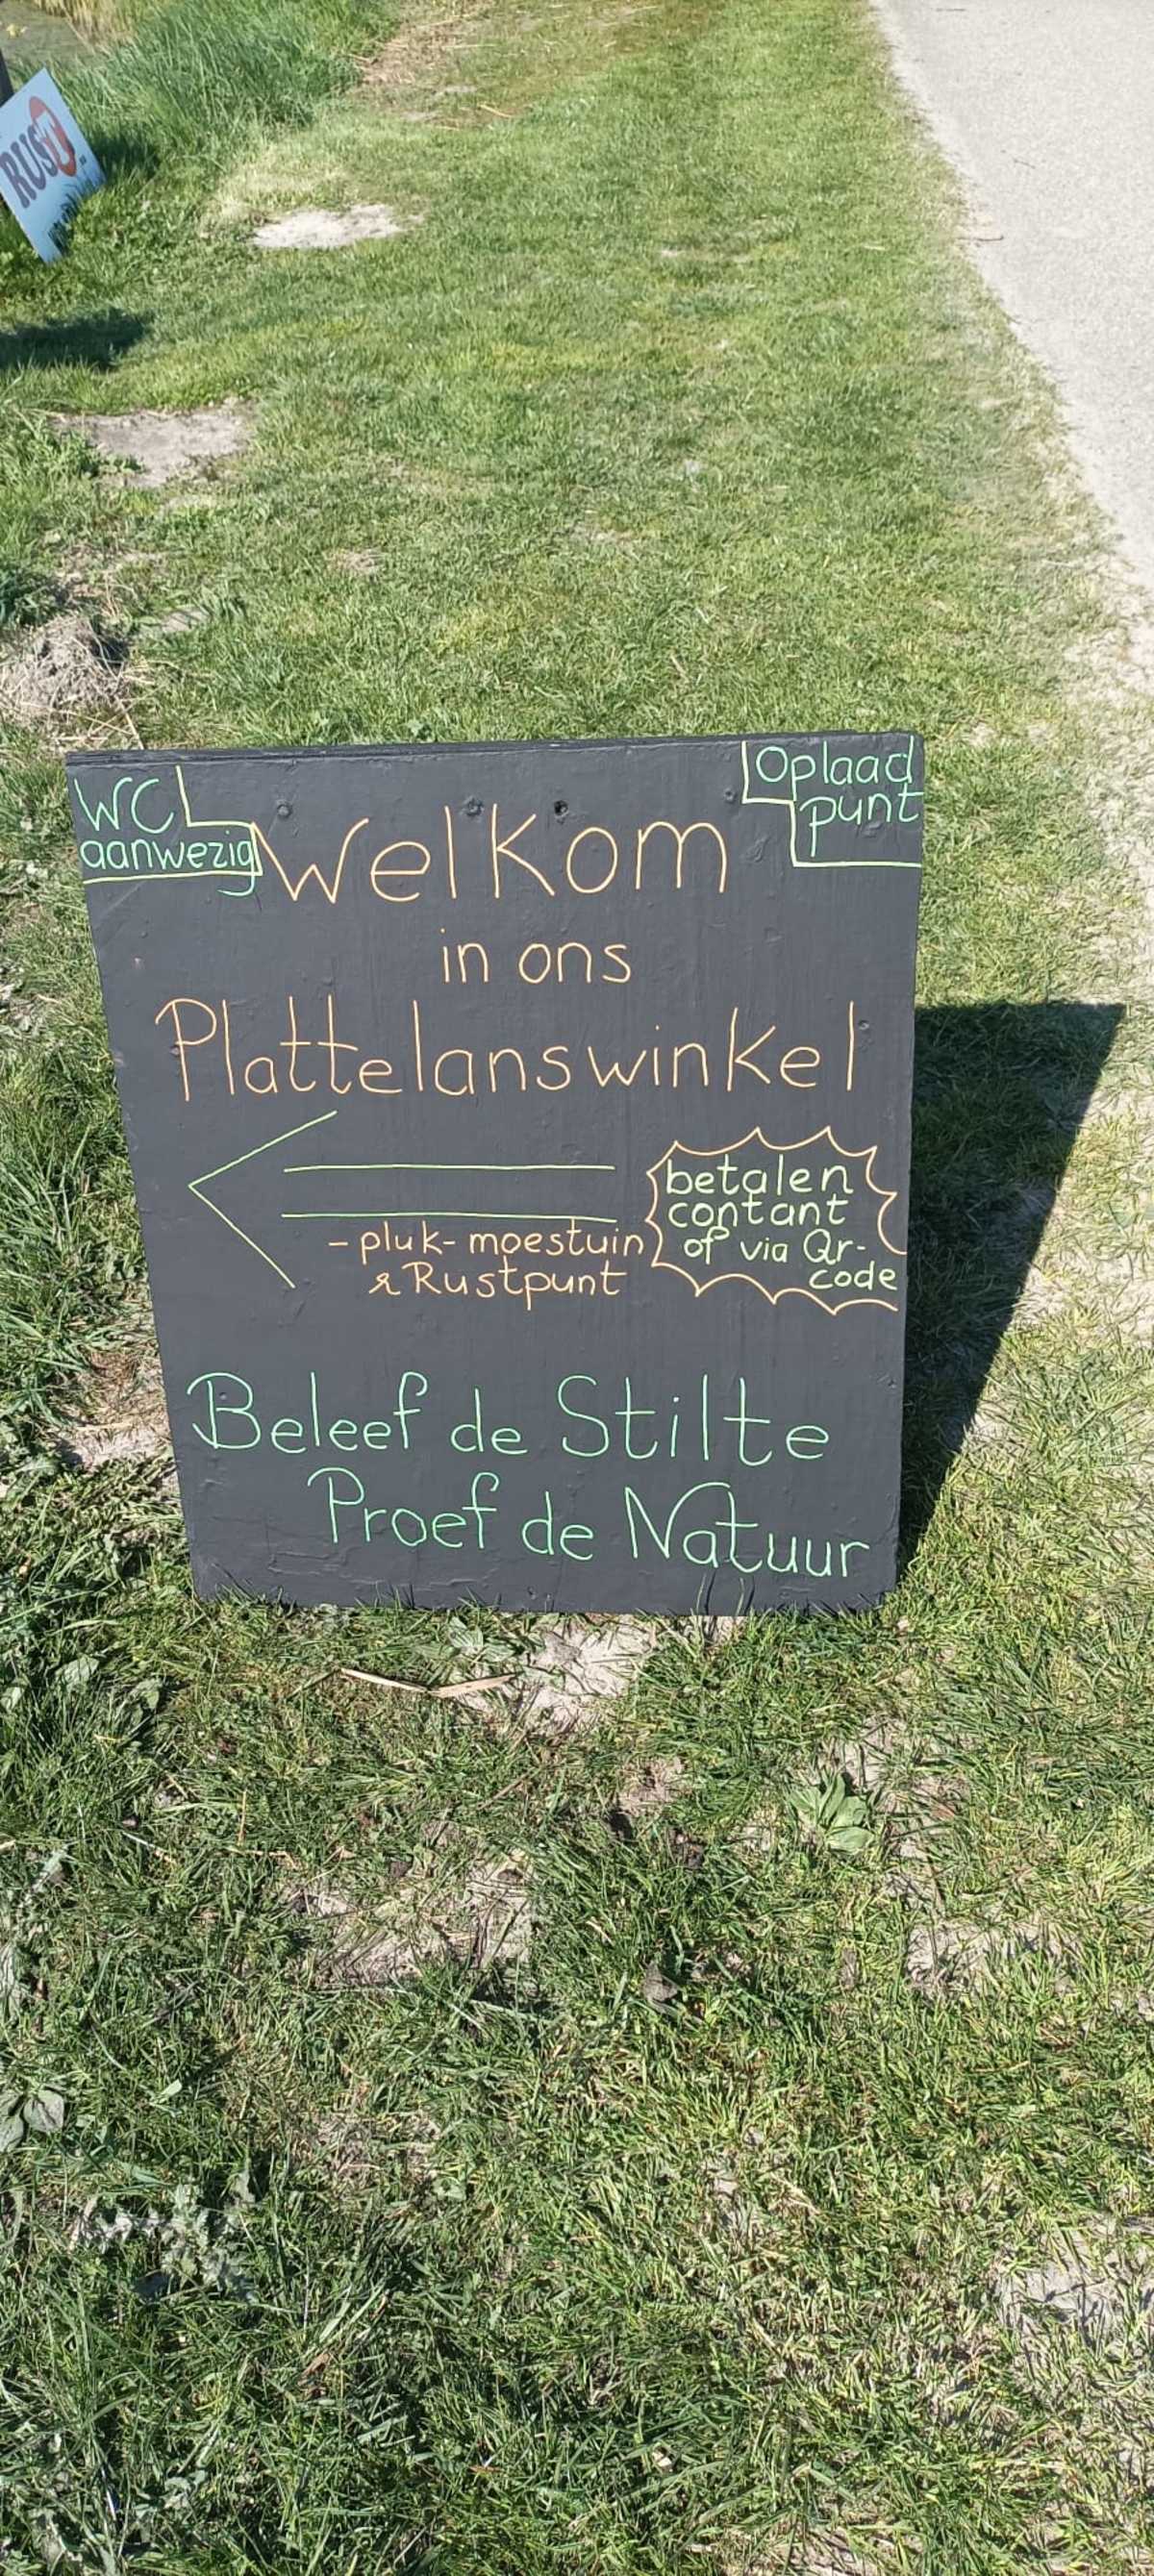 RUST
WC
aanwezig
Oplaad
punt
Welkom
in ons
Plattelanswinkel
betalen
contant
of via Qr-
code
-pluk- moestuin
& Rustpunt
Beleef de Stilte
Proef de Natuur